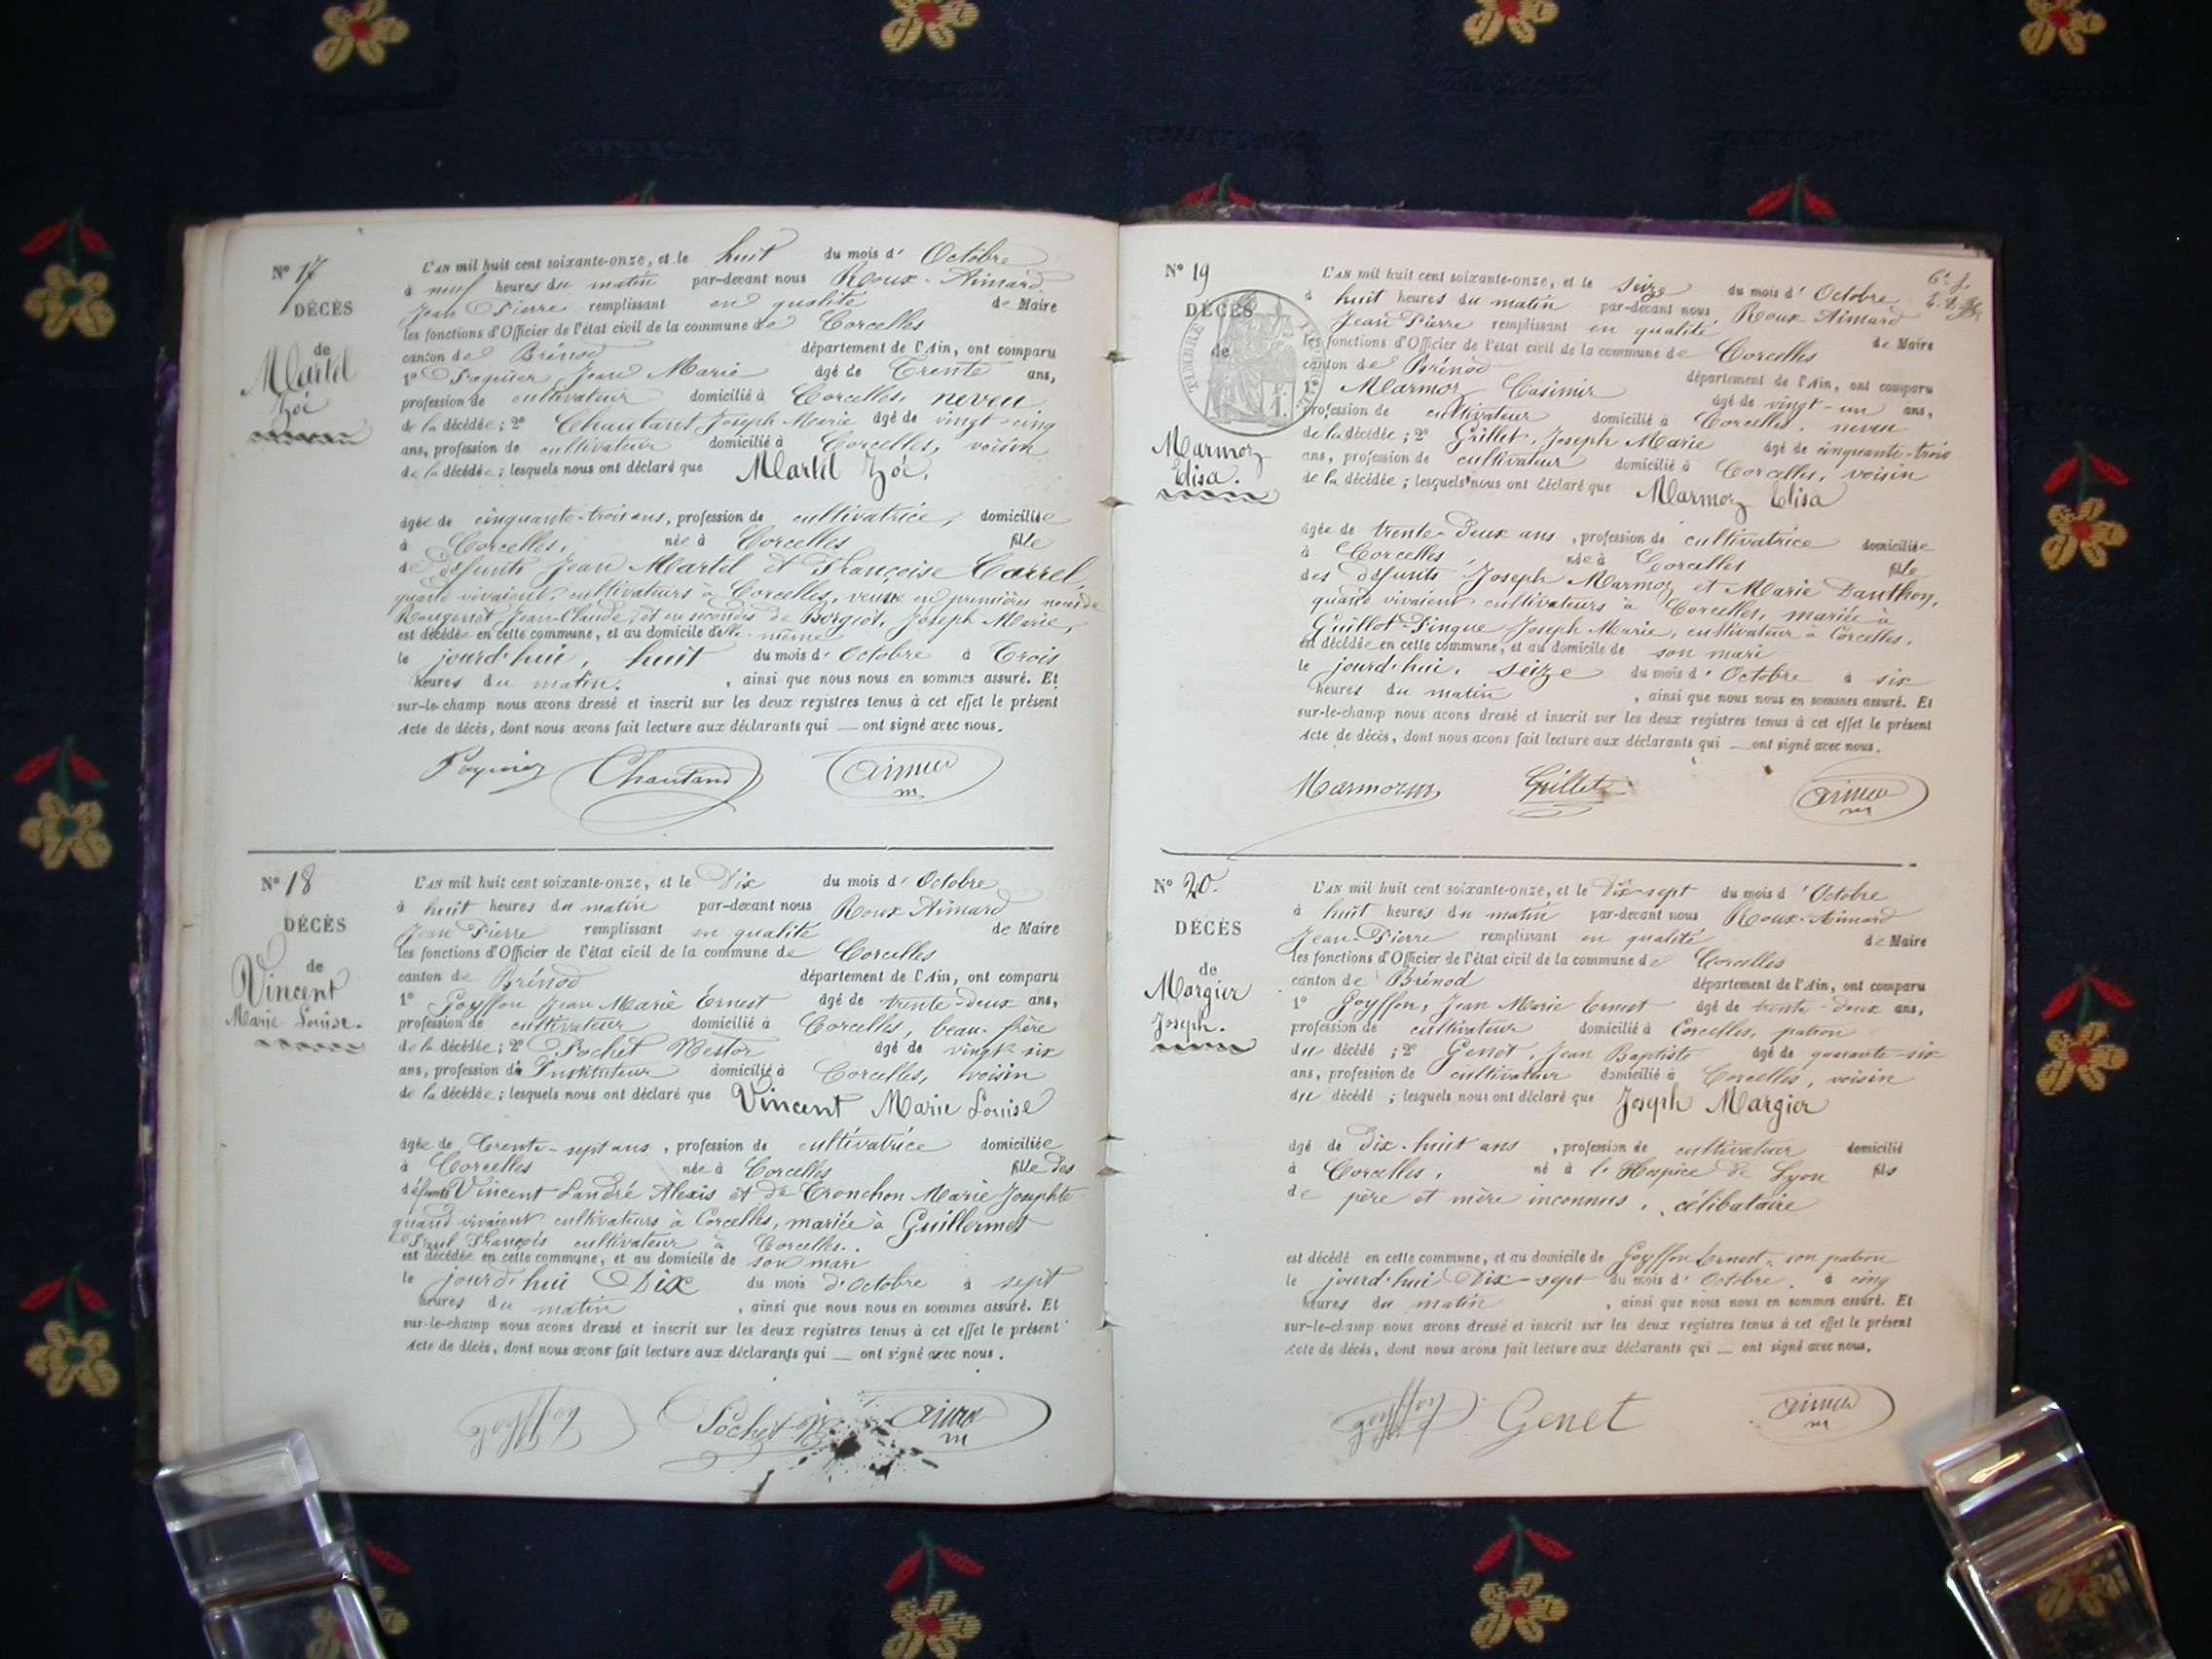 N° 17
DÉCÈS
de
Martel
Zoé
L'AN mil huit cent soixante-onze, et le huit du mois d'Octobre
à neuf heures du matin par-devant nous Roux-Aimard
Jean Pierre remplissant en qualité de Maire
les fonctions d'Officier de l'état civil de la commune de Corcelles
canton de Brénod département de l'Ain, ont comparu
1° Paquier Jean Marie âgé de Trente ans,
profession de cultivateur domicilié à Corcelles, neveu
de la décédée; 2° Chautant Joseph Marie âgé de vingt-cinq
ans, profession de cultivateur domicilié à Corcelles, voisin
de la décédée; lesquels nous ont déclaré que Martel Zoé,
âgée de cinquante-trois ans, profession de cultivatrice, domiciliée
à Corcelles, née à Corcelles fille
de défunts Jean Martel et Françoise Carrel,
quand vivaient, cultivateurs à Corcelles, veuve en premières noces de
Rougenet Jean-Claude, et en secondes de Borgeot, Joseph Marie,
est décédée en cette commune, et au domicile d'elle-même
le jourd'hui, huit du mois d'Octobre à Trois
heures du matin. , ainsi que nous nous en sommes assuré. Et
sur-le-champ nous avons dressé et inscrit sur les deux registres tenus à cet effet le présent
Acte de décès, dont nous avons fait lecture aux déclarants qui — ont signé avec nous.
Chautand
N° 18
DÉCÈS
de
Vincent
Marie Louise.
L'AN mil huit cent soixante-onze, et le Dix du mois d'Octobre
à huit heures du matin par-devant nous Roux Aimard
Jean Pierre remplissant en qualité de Maire
les fonctions d'Officier de l'état civil de la commune de Corcelles
canton de Brénod département de l'Ain, ont comparu
1° Goyffon Jean Marie Ernest âgé de trente-deux ans,
profession de cultivateur domicilié à Corcelles, beau-frère
de la décédée; 2° Pochet Nestor âgé de vingt-six
ans, profession d'Instituteur domicilié à Corcelles, voisin
de la décédée; lesquels nous ont déclaré que Vincent Marie Louise
âgée de Trente-sept ans, profession de cultivatrice domiciliée
à Corcelles née à Corcelles fille des
défunts Vincent Landré Alexis et de Tronchon Marie Josephte
quand vivaient cultivateurs à Corcelles, mariée à Guillermet
Paul François cultivateur à Corcelles.
est décédée en cette commune, et au domicile de son mari
le jourd'hui Dix du mois d'Octobre à sept
heures du matin , ainsi que nous nous en sommes assuré. Et
sur-le-champ nous avons dressé et inscrit sur les deux registres tenus à cet effet le présent
Acte de décès, dont nous avons fait lecture aux déclarants qui — ont signé avec nous.
goyffon Pochet N
N° 19
DÉCÈS
de
TIMBRE
Marmoz
Elisa.
L'AN mil huit cent soixante-onze, et le seize du mois d'Octobre
à huit heures du matin par-devant nous Roux Aimard
Jean Pierre remplissant en qualité de Maire
les fonctions d'Officier de l'état civil de la commune de Corcelles
canton de Brénod département de l'Ain, ont comparu
1° Marmoz Casimir âgé de vingt-un ans,
profession de cultivateur domicilié à Corcelles, neveu
de la décédée; 2° Grillet, Joseph Marie âgé de cinquante-trois
ans, profession de cultivateur domicilié à Corcelles, voisin
de la décédée; lesquels nous ont déclaré que Marmoz Elisa
âgée de trente-deux ans, profession de cultivatrice domiciliée
à Corcelles née à Corcelles fille
des défunts Joseph Marmoz et Marie Danthon,
quand vivaient cultivateurs à Corcelles, mariée à
Guillot-Pingue Joseph Marie, cultivateur à Corcelles.
est décédée en cette commune, et au domicile de son mari
le jourd'hui, seize du mois d'Octobre à six
heures du matin , ainsi que nous nous en sommes assuré. Et
sur-le-champ nous avons dressé et inscrit sur les deux registres tenus à cet effet le présent
Acte de décès, dont nous avons fait lecture aux déclarants qui — ont signé avec nous.
Grillet
N° 20.
DÉCÈS
de
Margier
Joseph.
L'AN mil huit cent soixante-onze, et le Dix-sept du mois d'Octobre
à huit heures du matin par-devant nous Roux-Aimard
Jean-Pierre remplissant en qualité de Maire
les fonctions d'Officier de l'état civil de la commune de Corcelles
canton de Brénod département de l'Ain, ont comparu
1° Goyffon, Jean Marie Ernest âgé de trente-deux ans,
profession de cultivateur domicilié à Corcelles, patron
du décédé; 2° Genet, Jean Baptiste âgé de quarante-six
ans, profession de cultivateur domicilié à Corcelles, voisin
du décédé; lesquels nous ont déclaré que Joseph Margier
âgé de Dix-huit ans, profession de cultivateur domicilié
à Corcelles, né à l'Hospice de Lyon fils
de père et mère inconnus, célibataire
est décédé en cette commune, et au domicile de Goyffon Ernest, son patron
le jourd'hui Dix-sept du mois d'Octobre à cinq
heures du matin , ainsi que nous nous en sommes assuré. Et
sur-le-champ nous avons dressé et inscrit sur les deux registres tenus à cet effet le présent
Acte de décès, dont nous avons fait lecture aux déclarants qui — ont signé avec nous.
goyffon Genet